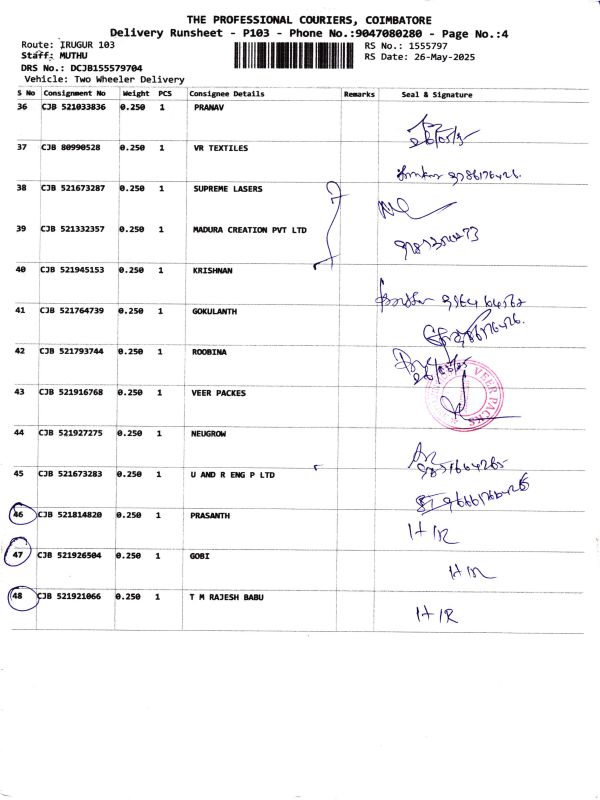 THE PROFESSIONAL COURIERS, COIMBATORE
Delivery Runsheet - P103 - Phone No.:9047080280 - Page No.:4
Route: IRUGUR 103
RS No.: 1555797
Staff: MUTHU
RS Date: 26-May-2025
DRS No.: DCJB155579704
Vehicle: Two Wheeler Delivery
S No Consignment No Weight PCS Consignee Details Remarks Seal & Signature
36 CJB 521033836 0.250 1 PRANAV
37 CJB 80990528 0.250 1 VR TEXTILES
38 CJB 521673287 0.250 1 SUPREME LASERS
39 CJB 521332357 0.250 1 MADURA CREATION PVT LTD
40 CJB 521945153 0.250 1 KRISHNAN
41 CJB 521764739 0.250 1 GOKULANTH
42 CJB 521793744 0.250 1 ROOBINA
43 CJB 521916768 0.250 1 VEER PACKES
VEER PACKS
44 CJB 521927275 0.250 1 NEUGROW
45 CJB 521673283 0.250 1 U AND R ENG P LTD
46 CJB 521814820 0.250 1 PRASANTH
47 CJB 521926504 0.250 1 GOBI
48 CJB 521921066 0.250 1 T M RAJESH BABU